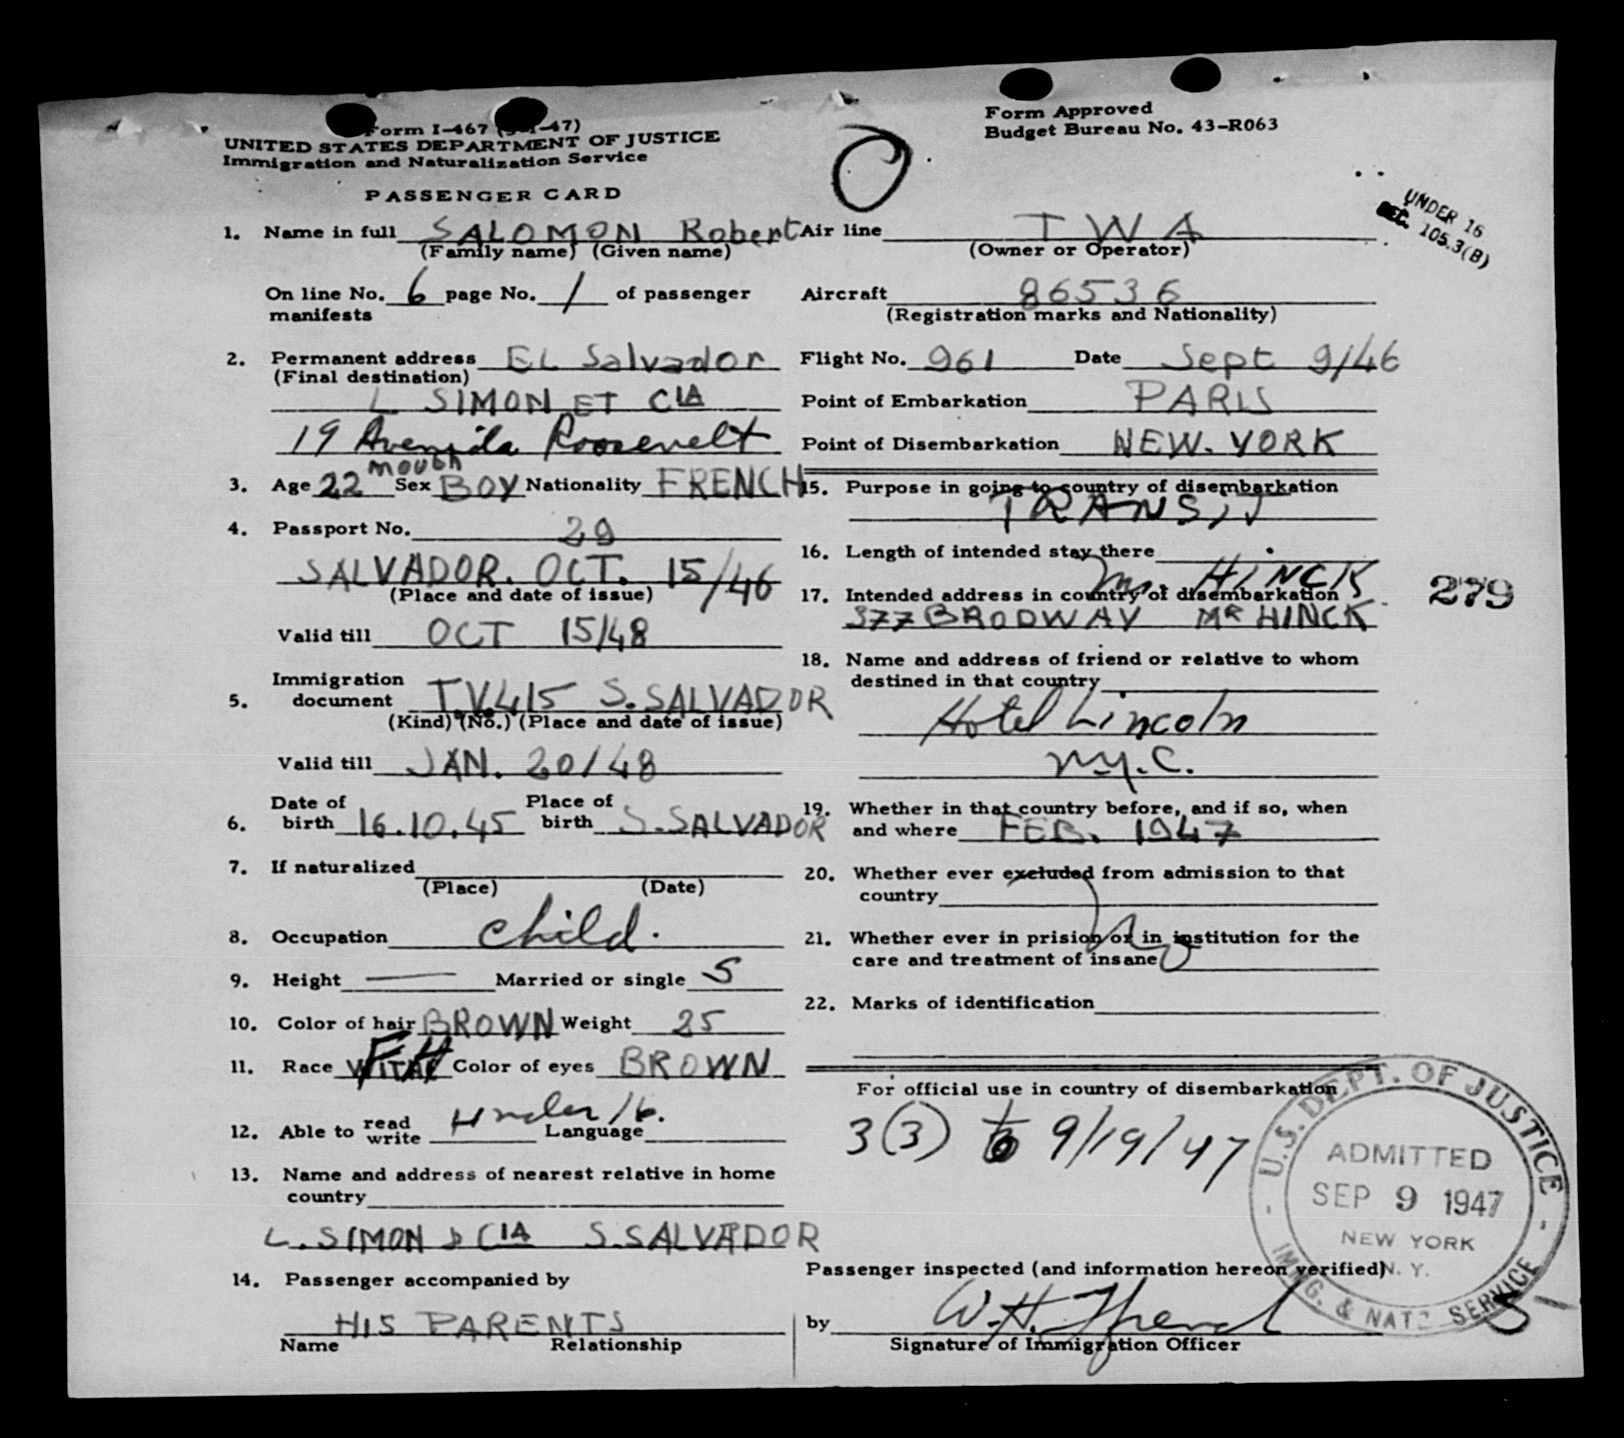 Form I-467 ( -47)
UNITED STATES DEPARTMENT OF JUSTICE
Immigration and Naturalization Service
PASSENGER CARD
Form Approved
Budget Bureau No. 43-R063
UNDER 16
SEC. 105.3(B)
1. Name in full SALOMON Robert
(Family name) (Given name)
On line No. 6 page No. 1 of passenger
manifests
2. Permanent address EL Salvador
(Final destination)
L SIMON ET CIA
19 Avenida Roosevelt
3. Age 22 month Sex BOY Nationality FRENCH
4. Passport No. 29
SALVADOR. OCT. 15/46
(Place and date of issue)
Valid till OCT 15/48
Immigration
5. document T.V.415 S. SALVADOR
(Kind) (No.) (Place and date of issue)
Valid till JAN. 20/48
Date of Place of
6. birth 16.10.45 birth S. SALVADOR
7. If naturalized
(Place) (Date)
8. Occupation child.
9. Height — Married or single S
10. Color of hair BROWN Weight 25
11. Race FH Color of eyes BROWN
12. Able to read write Under 16. Language
13. Name and address of nearest relative in home
country
L. SIMON & CIA S. SALVADOR
14. Passenger accompanied by
HIS PARENTS
Name Relationship
Air line TWA
(Owner or Operator)
Aircraft 86536
(Registration marks and Nationality)
Flight No. 961 Date Sept 9/46
Point of Embarkation PARIS
Point of Disembarkation NEW. YORK
15. Purpose in going to country of disembarkation
TRANSIT
16. Length of intended stay there
Mr. HINCK
17. Intended address in country of disembarkation
377 BRODWAY MR HINCK
279
18. Name and address of friend or relative to whom
destined in that country
Hotel Lincoln
N.Y.C.
19. Whether in that country before, and if so, when
and where FEB. 1947
20. Whether ever excluded from admission to that
country
21. Whether ever in prision or in institution for the
care and treatment of insane No
22. Marks of identification
For official use in country of disembarkation
3(3) to 9/19/47
U.S. DEPT. OF JUSTICE
ADMITTED
SEP 9 1947
NEW YORK
N. Y.
IMMG. & NATZ SERVICE
Passenger inspected (and information hereon verified)
by W.H.
Signature of Immigration Officer